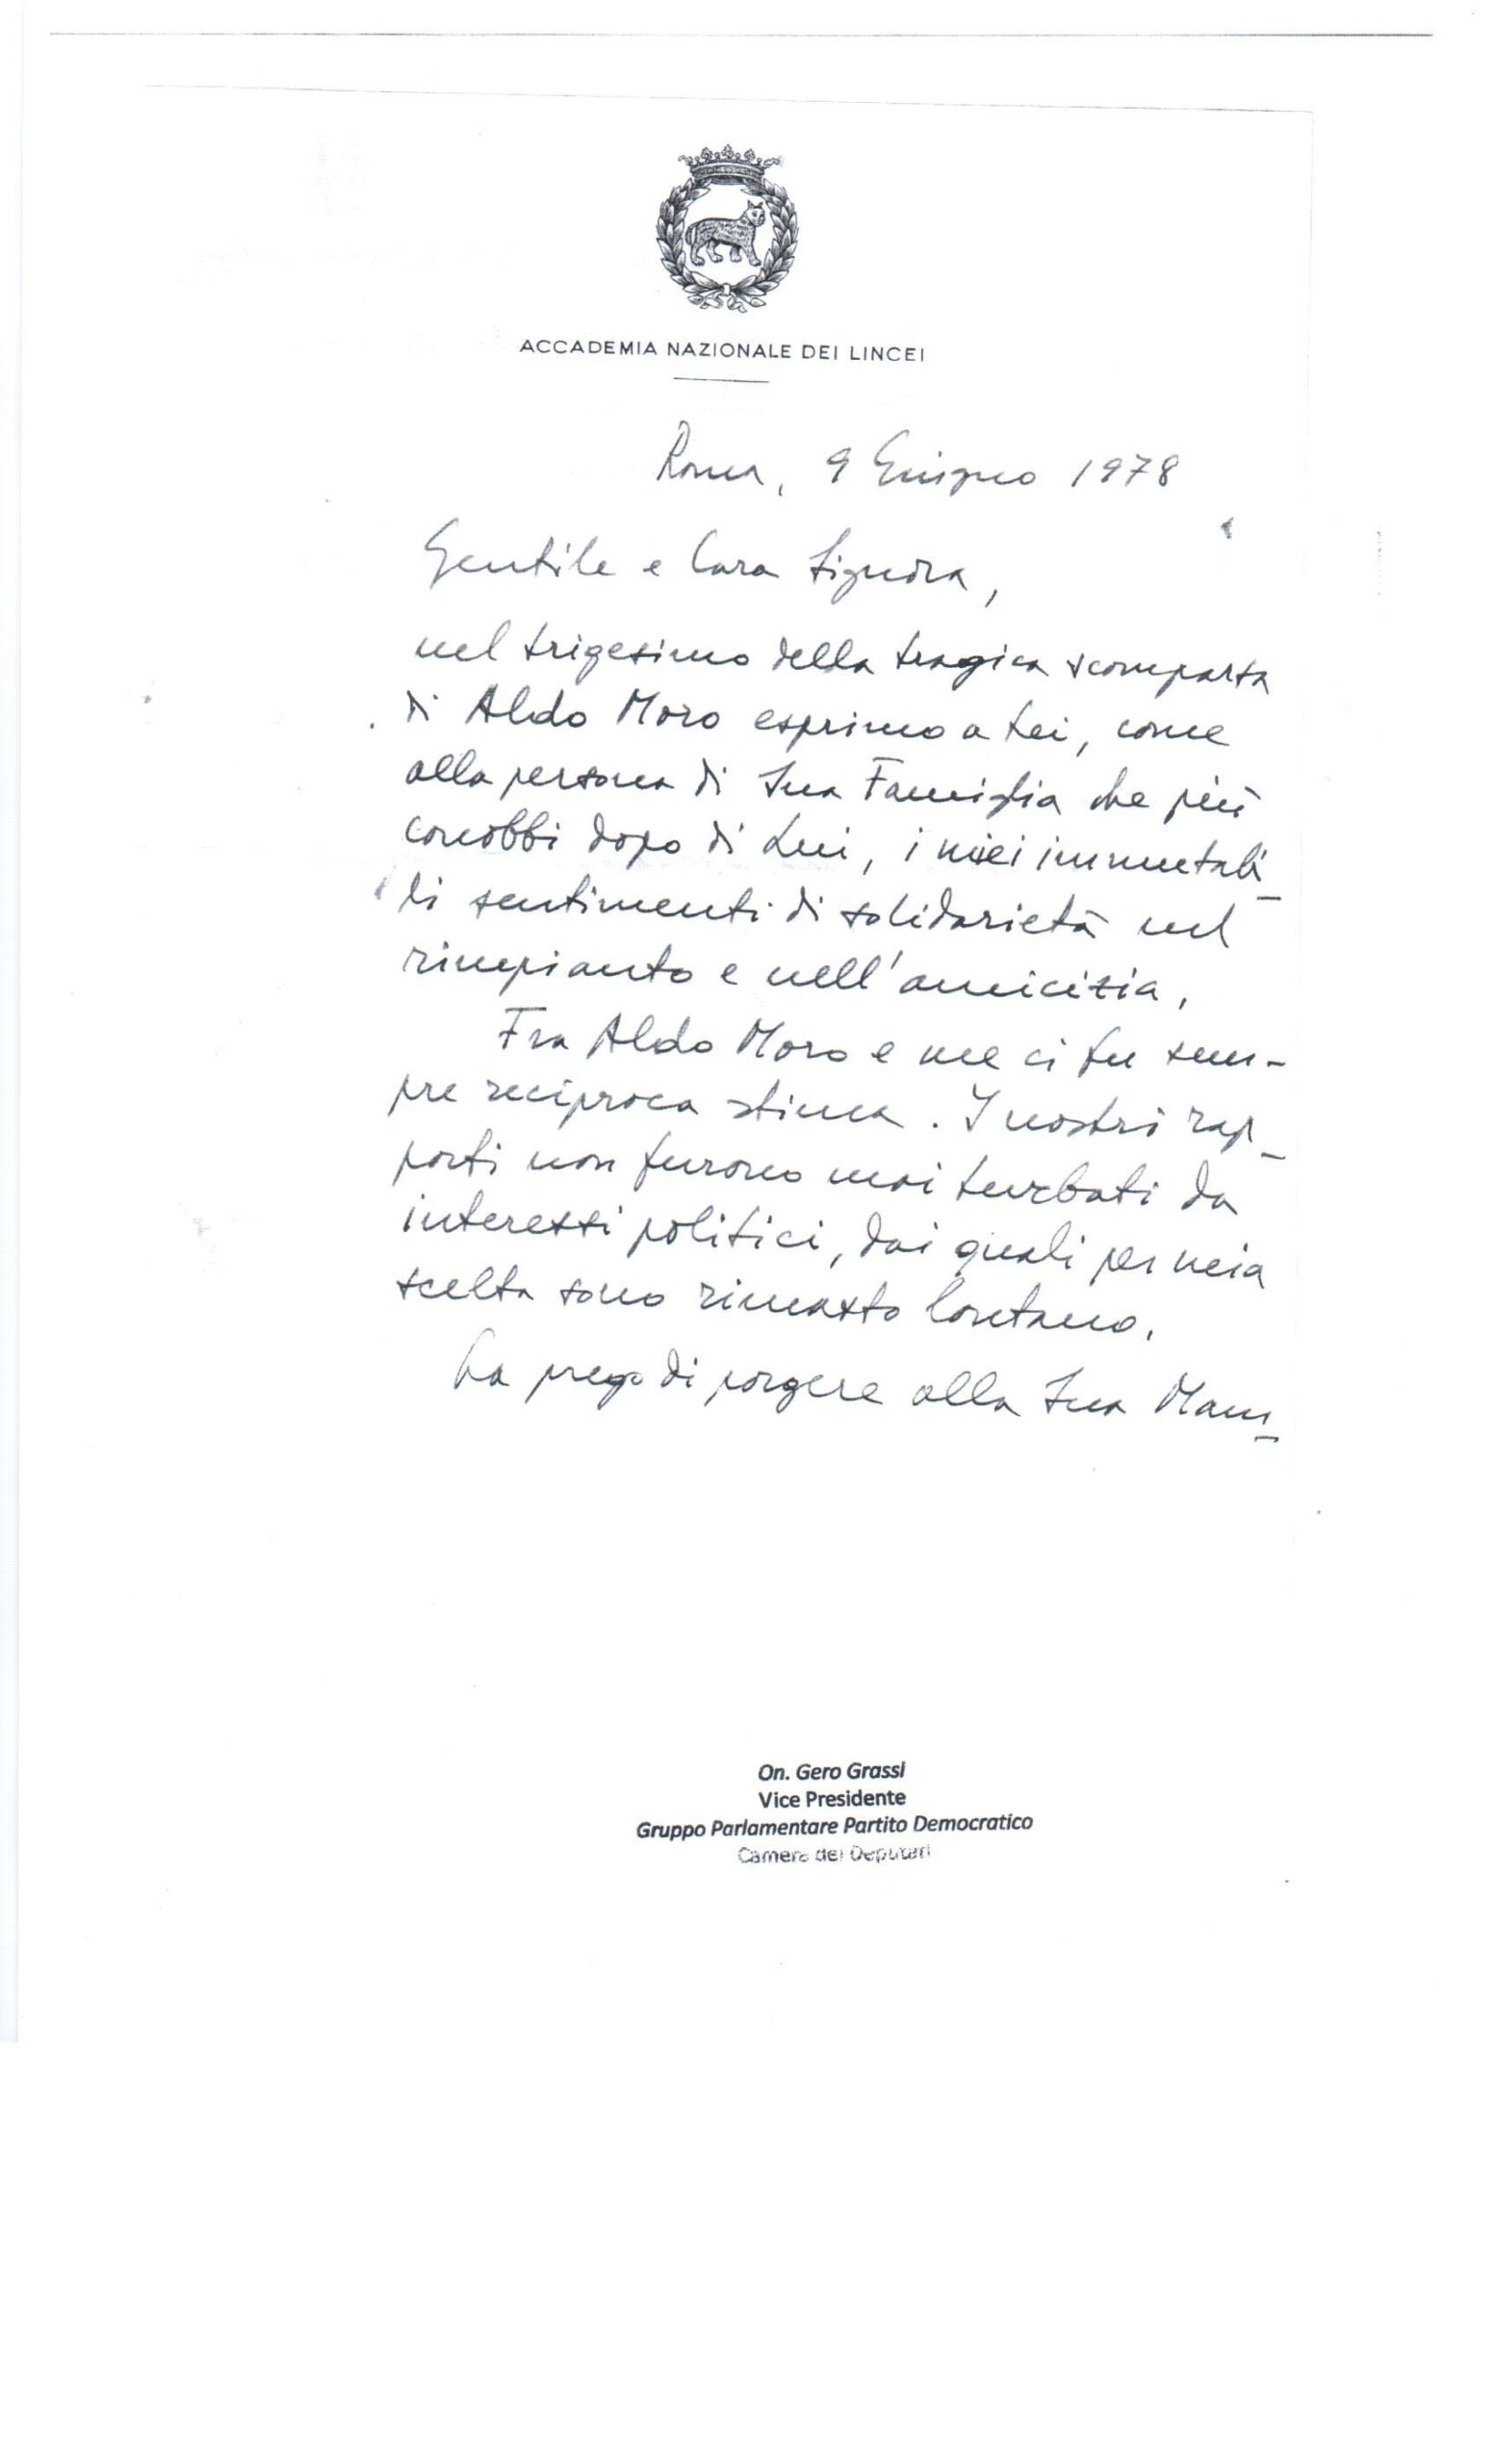 ACCADEMIA NAZIONALE DEI LINCEI
Roma, 9 Giugno 1978
Gentile e Cara Signora,
nel trigesimo della tragica scomparsa
di Aldo Moro esprimo a Lei, come
alla persona di Sua Famiglia che più
conobbi dopo di Lui, i miei immutabi-
li sentimenti di solidarietà nel
rimpianto e nell'amicizia.
Fra Aldo Moro e me ci fu sem-
pre reciproca stima. I nostri rap-
porti non furono mai turbati da
interessi politici, dai quali per mia
scelta sono rimasto lontano.
La prego di porgere alla Sua Mam-
On. Gero Grassi
Vice Presidente
Gruppo Parlamentare Partito Democratico
Camera dei Deputati